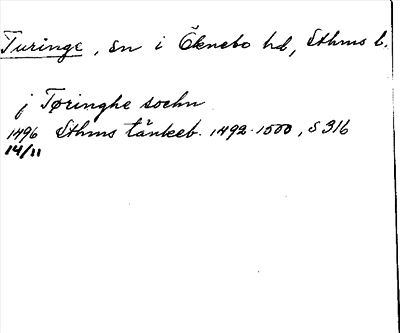 Turinge, sn i Öknebo hd, Sthms l.
j Tøringhe sochn
1496 Sthms tänkeb. 1492-1500, s 316
14/11